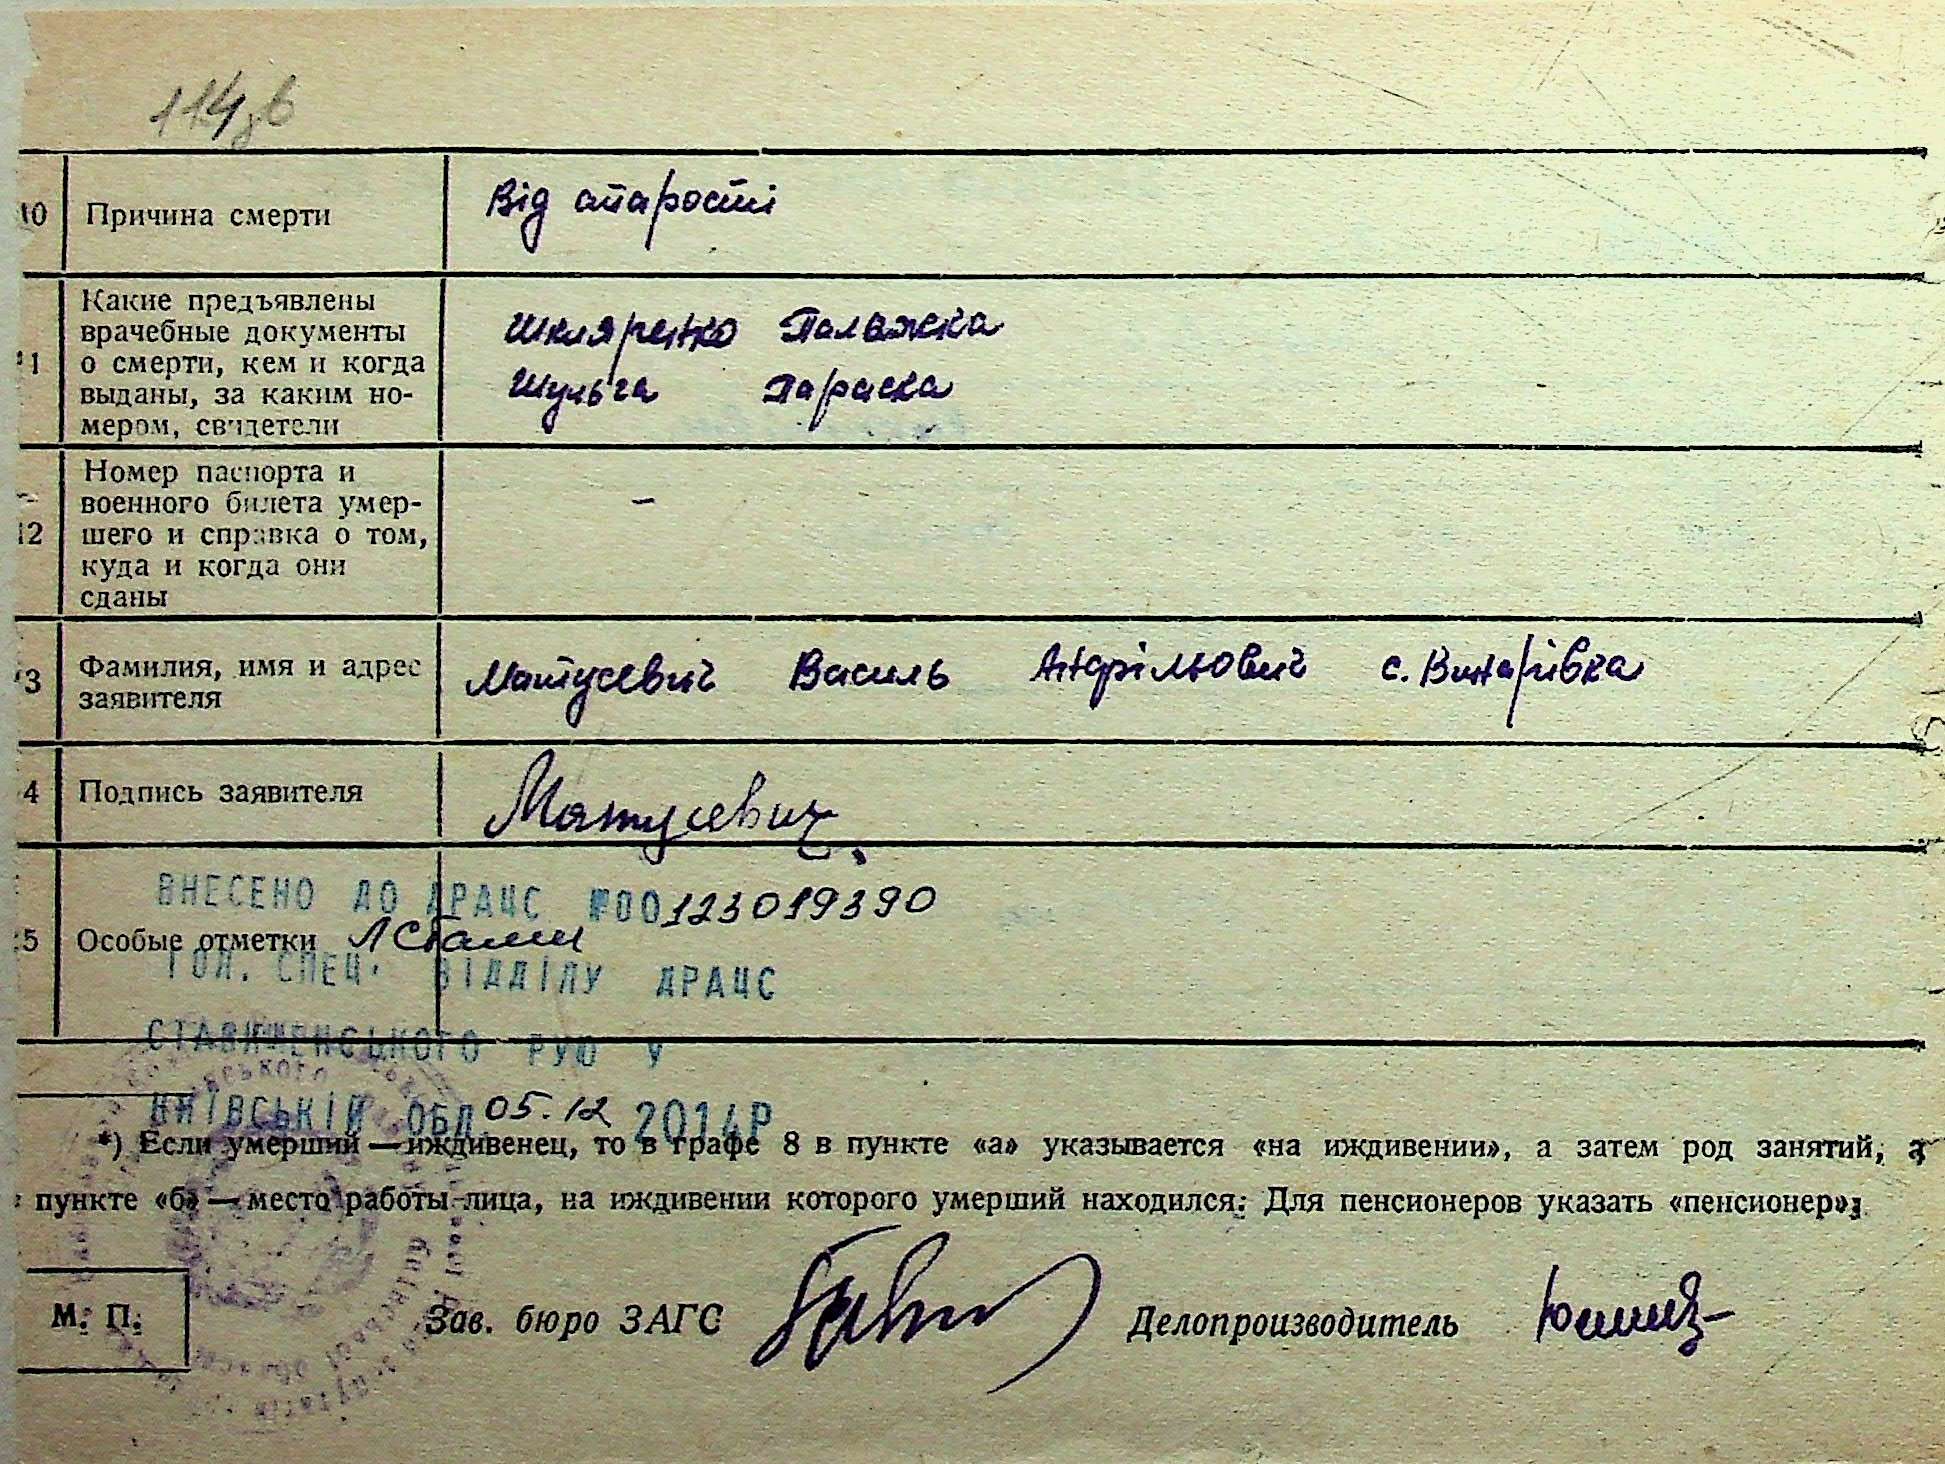 114зв
10 Причина смерти Від старости
11 Какие предъявлены
врачебные документы
о смерти, кем и когда
выданы, за каким но-
мером, свидетели
Шкляренко Палажка
Шульга Параска
12 Номер паспорта и
военного билета умер-
шего и справка о том,
куда и когда они
сданы
–
13 Фамилия, имя и адрес
заявителя
Матусевич Василь Андрільович с. Винарівка
4 Подпись заявителя Матусевич
ВНЕСЕНО ДО ДРАЦС №00123019390
5 Особые отметки
ГОЛ. СПЕЦ. ВІДДІЛУ ДРАЦС
СТАВИЩЕНСЬКОГО РУЮ У
КИЇВСЬКІЙ ОБЛ. 05.12 2014Р
*) Если умерший — иждивенец, то в графе 8 в пункте «а» указывается «на иждивении», а затем род занятий, а
пункте «б» — место работы лица, на иждивении которого умерший находился. Для пенсионеров указать «пенсионер».
М. П. Зав. бюро ЗАГС Делопроизводитель